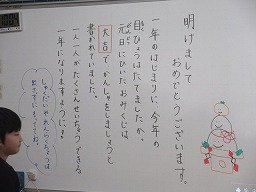 明けまして
おめでとうございます。
一年のはじまりに、今年の
目ひょうはたてましたか。
元日にひいたおみくじは、
大吉でかんしゃをしましょうと
書かれていました。
一人一人がたくさんせいちょうできる
一年になりますように。